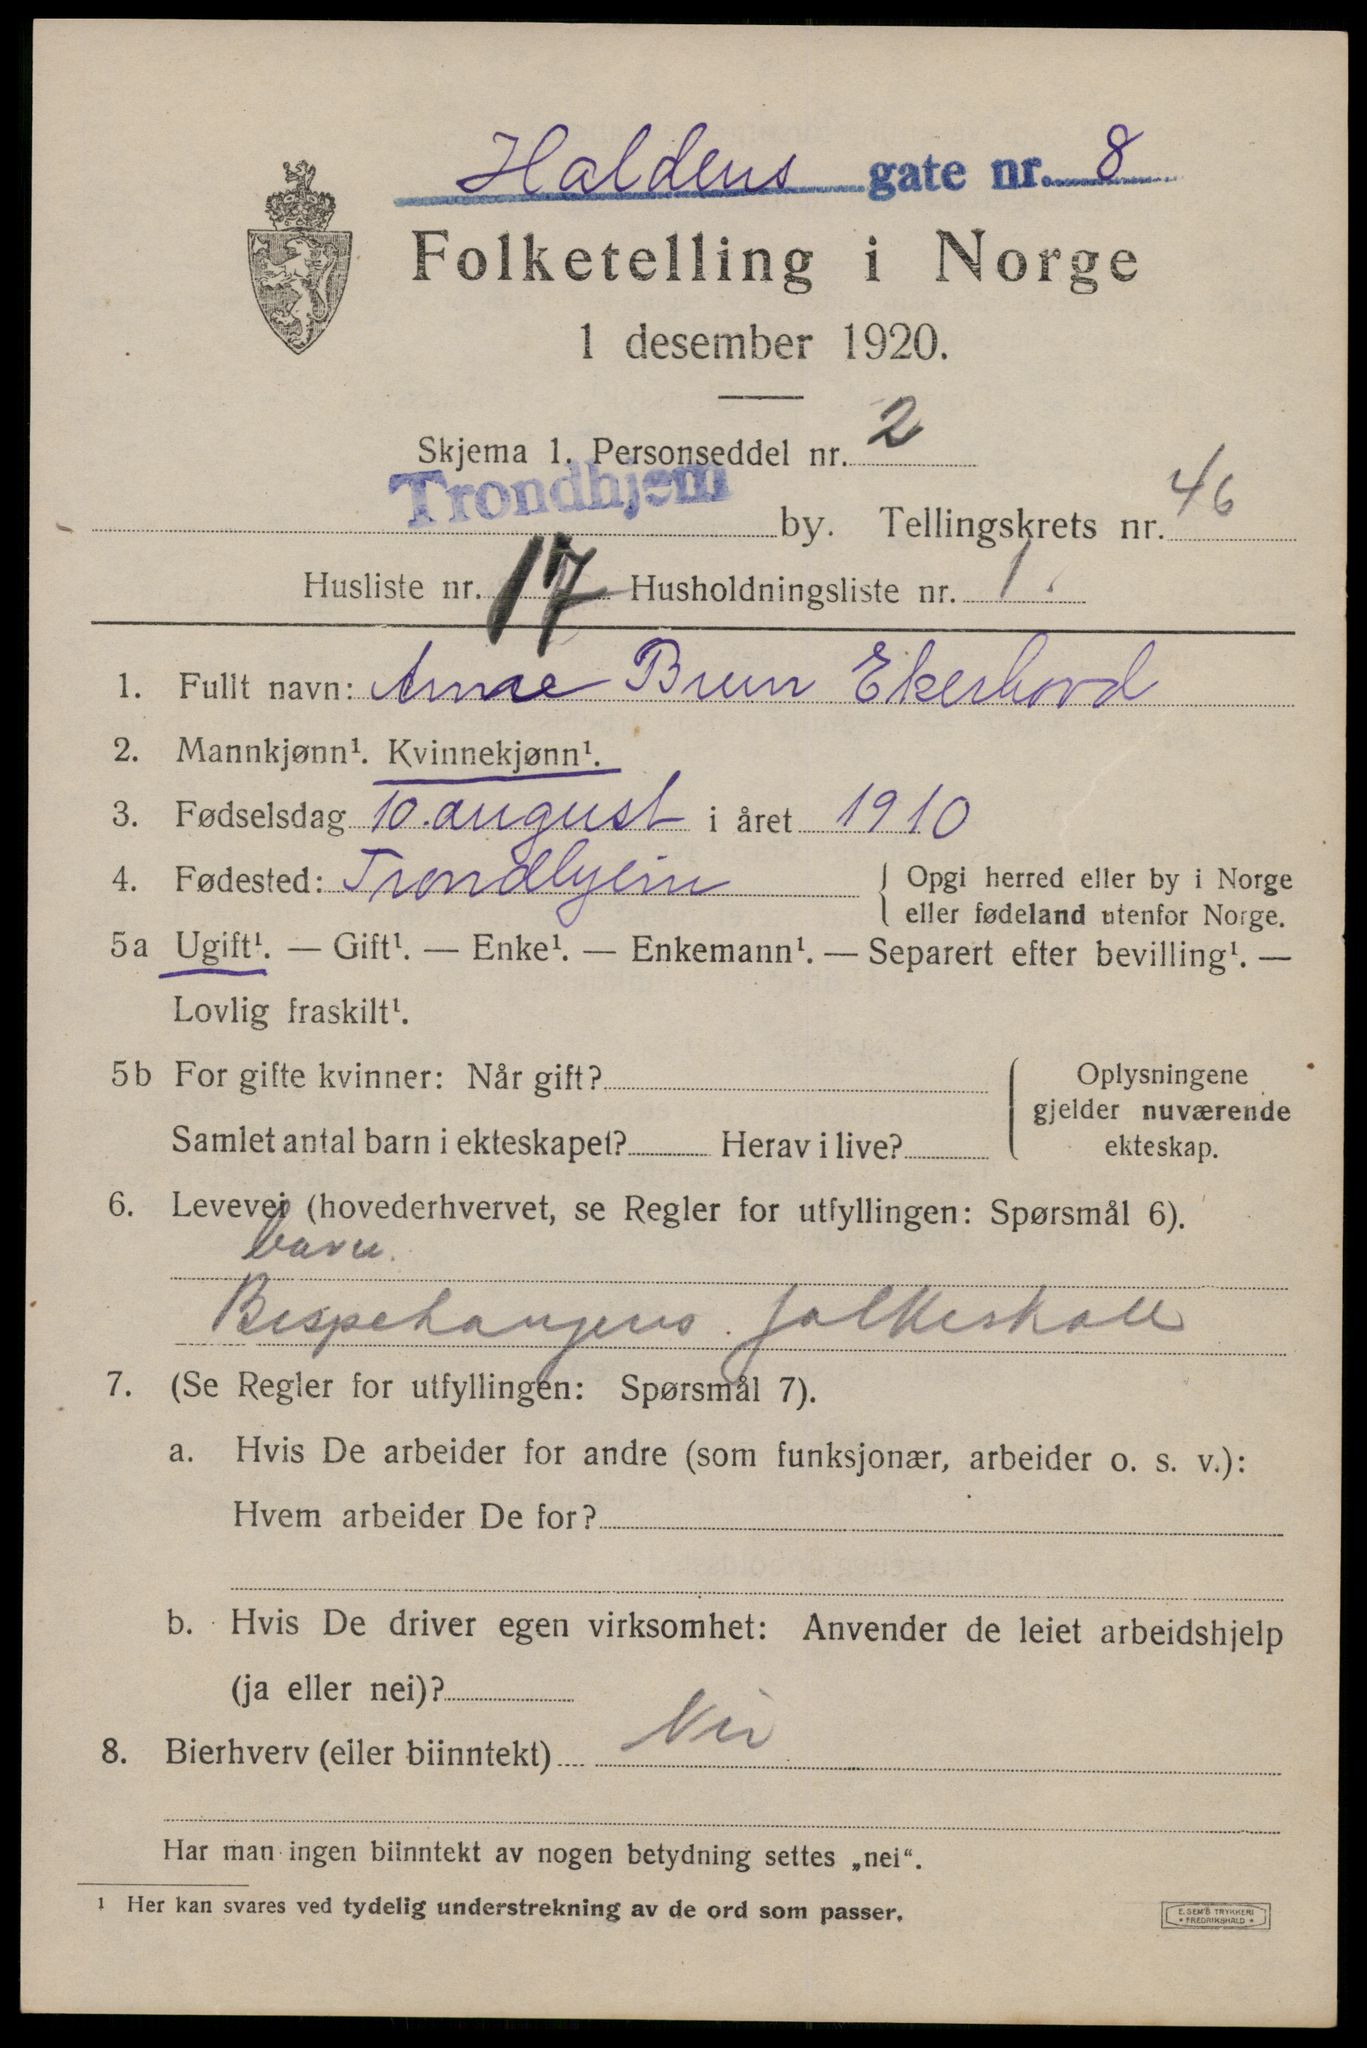 Haldens gate nr. 8
Folketelling i Norge
1 desember 1920.
Skjema 1. Personseddel nr. 2
Trondhjem by. Tellingskrets nr. 46
Husliste nr. 17 Husholdningsliste nr. 1.
1. Fullt navn: Brun
2. Mannkjønn¹. Kvinnekjønn¹.
3. Fødselsdag 10. august i året 1910
4. Fødested: Trondhjem { Opgi herred eller by i Norge
eller fødeland utenfor Norge.
5a Ugift¹. — Gift¹. — Enke¹. — Enkemann¹. — Separert efter bevilling¹. —
Lovlig fraskilt¹.
5b For gifte kvinner: Når gift?
Samlet antal barn i ekteskapet? Herav i live?
Oplysningene
gjelder nuværende
ekteskap.
6. Levevei (hovederhvervet, se Regler for utfyllingen: Spørsmål 6).
barn.
Bispehaugens folkeskole
7. (Se Regler for utfyllingen: Spørsmål 7).
a. Hvis De arbeider for andre (som funksjonær, arbeider o. s. v.):
Hvem arbeider De for?
b. Hvis De driver egen virksomhet: Anvender de leiet arbeidshjelp
(ja eller nei)?
8. Bierhverv (eller biinntekt) Nei
Har man ingen biinntekt av nogen betydning settes „nei“.
1 Her kan svares ved tydelig understrekning av de ord som passer.
E. SEM'S TRYKKERI
* FREDRIKSHALD *